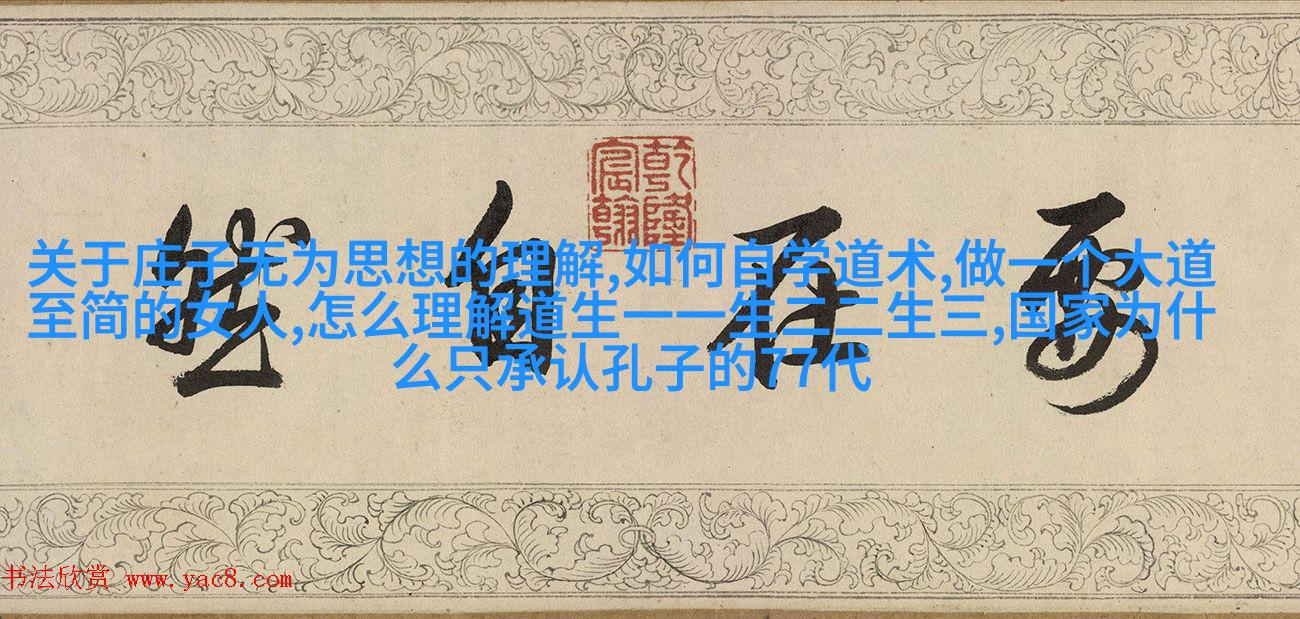 乾隆
宸翰
要在自然
关于庄子无为思想的理解,如何自学道术,做一个大道
至简的女人,怎么理解道生一一生二二生三,国家为什
么只承认孔子的77代
书法欣赏 www.yac8.com